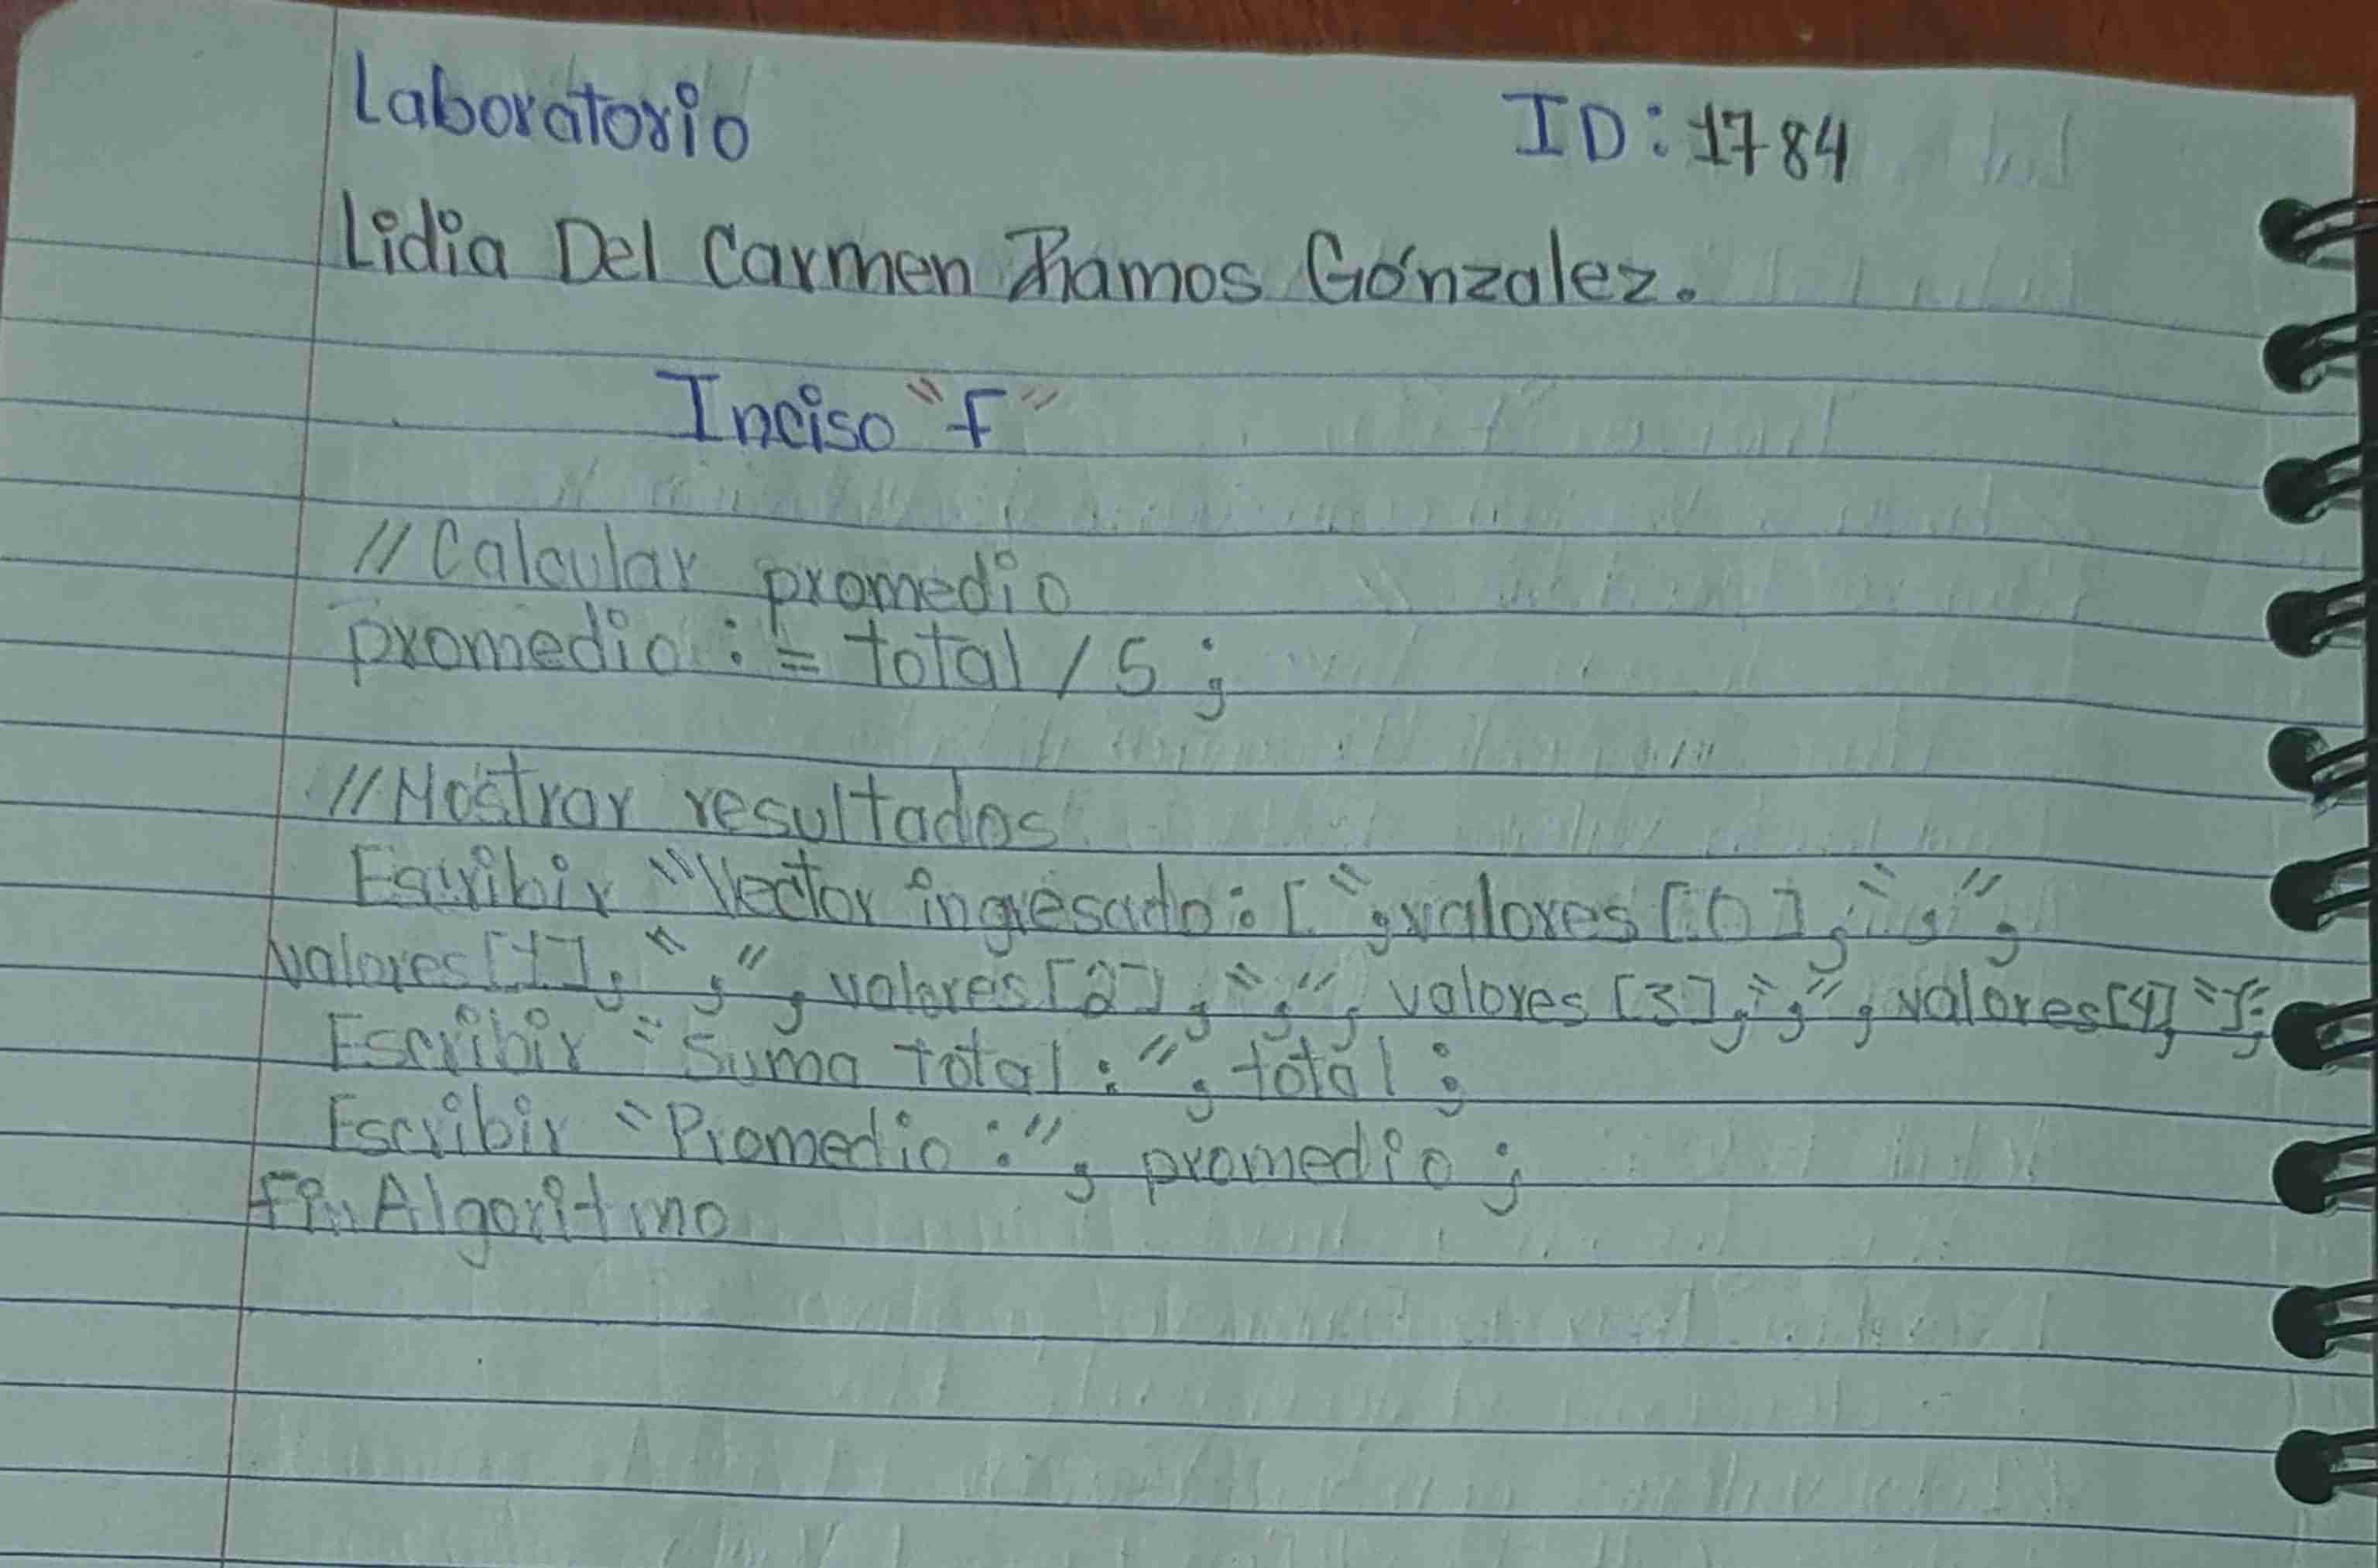 Laboratorio ID: 1784
Lidia Del Carmen Ramos Gónzalez.
Inciso "F"
// Calcular promedio
promedio := total / 5 ;
// Mostrar resultados
Escribir "Vector ingresado: [ ", valores [0], ", ",
valores [1], ", ", valores [2], ", ", valores [3], ", ", valores[4], "]";
Escribir "Suma total : ", total ;
Escribir "Promedio : ", promedio ;
Fin Algoritmo